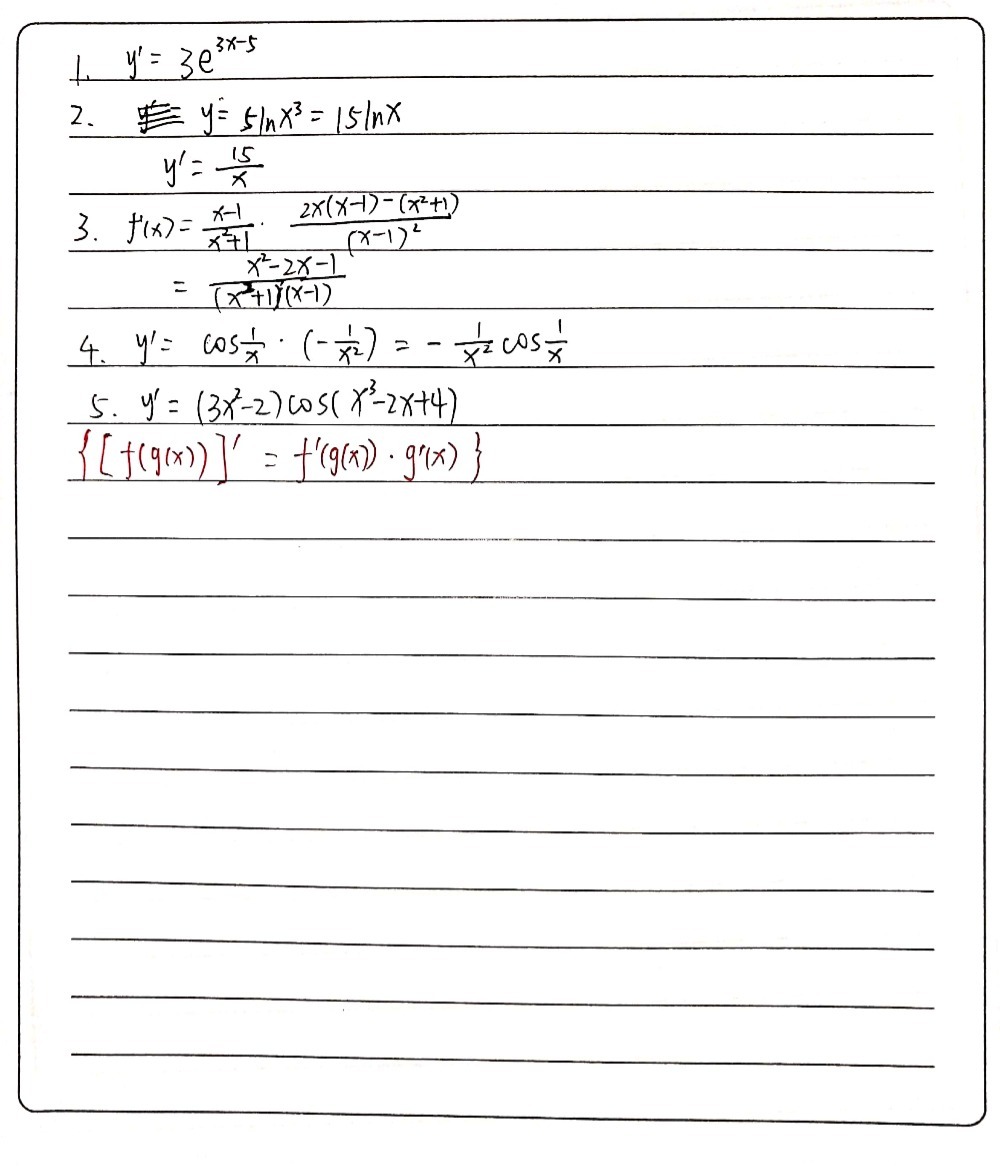 1. y' = 3e^{3x-5}
2. y = 5lnx³ = 15lnx
y' = \frac{15}{x}
3. f'(x) = \frac{x-1}{x²+1} · \frac{2x(x-1)-(x²+1)}{(x-1)²}
= \frac{x²-2x-1}{(x²+1)(x-1)}
4. y' = cos\frac{1}{x} · (-\frac{1}{x²}) = -\frac{1}{x²} cos\frac{1}{x}
5. y' = (3x²-2)cos(x³-2x+4)
{[f(g(x))]' = f'(g(x)) · g'(x)}